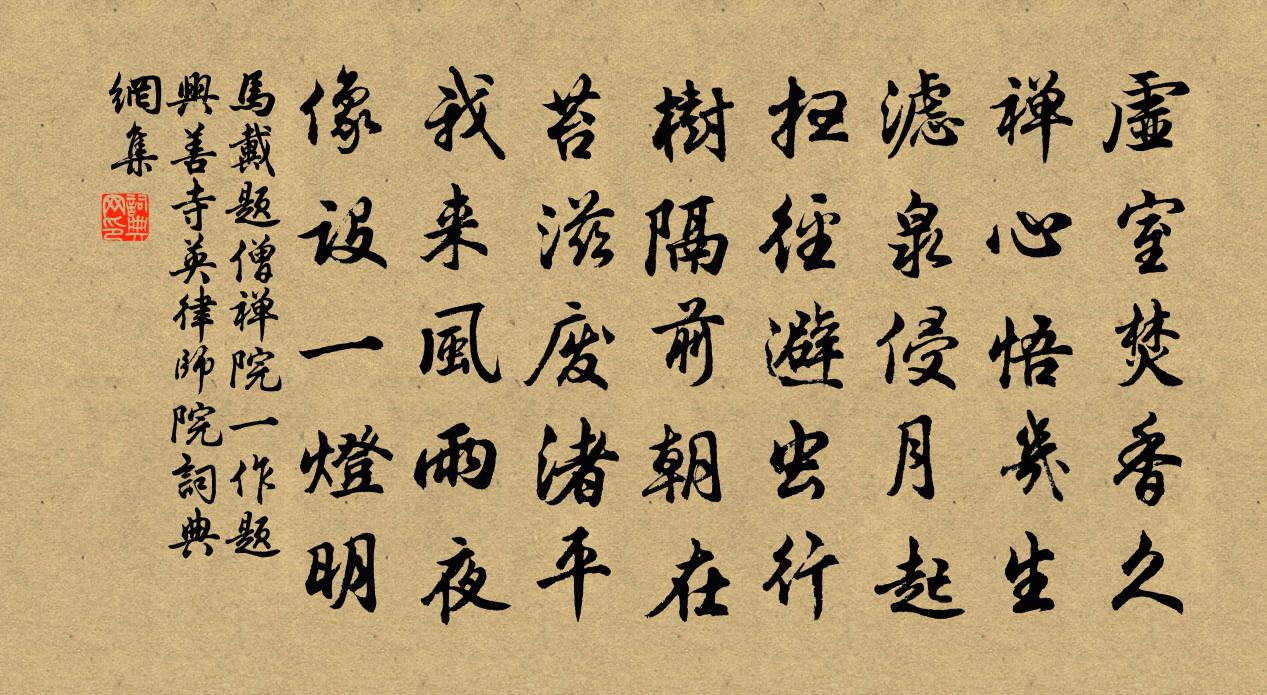 虛室焚香久
禅心悟幾生
濾泉侵月起
扫徑避虫行
樹隔前朝在
苔滋废渚平
我来風雨夜
像设一燈明
馬戴题僧禅院一作题
興善寺英律师院詞典
網集
詞典网印